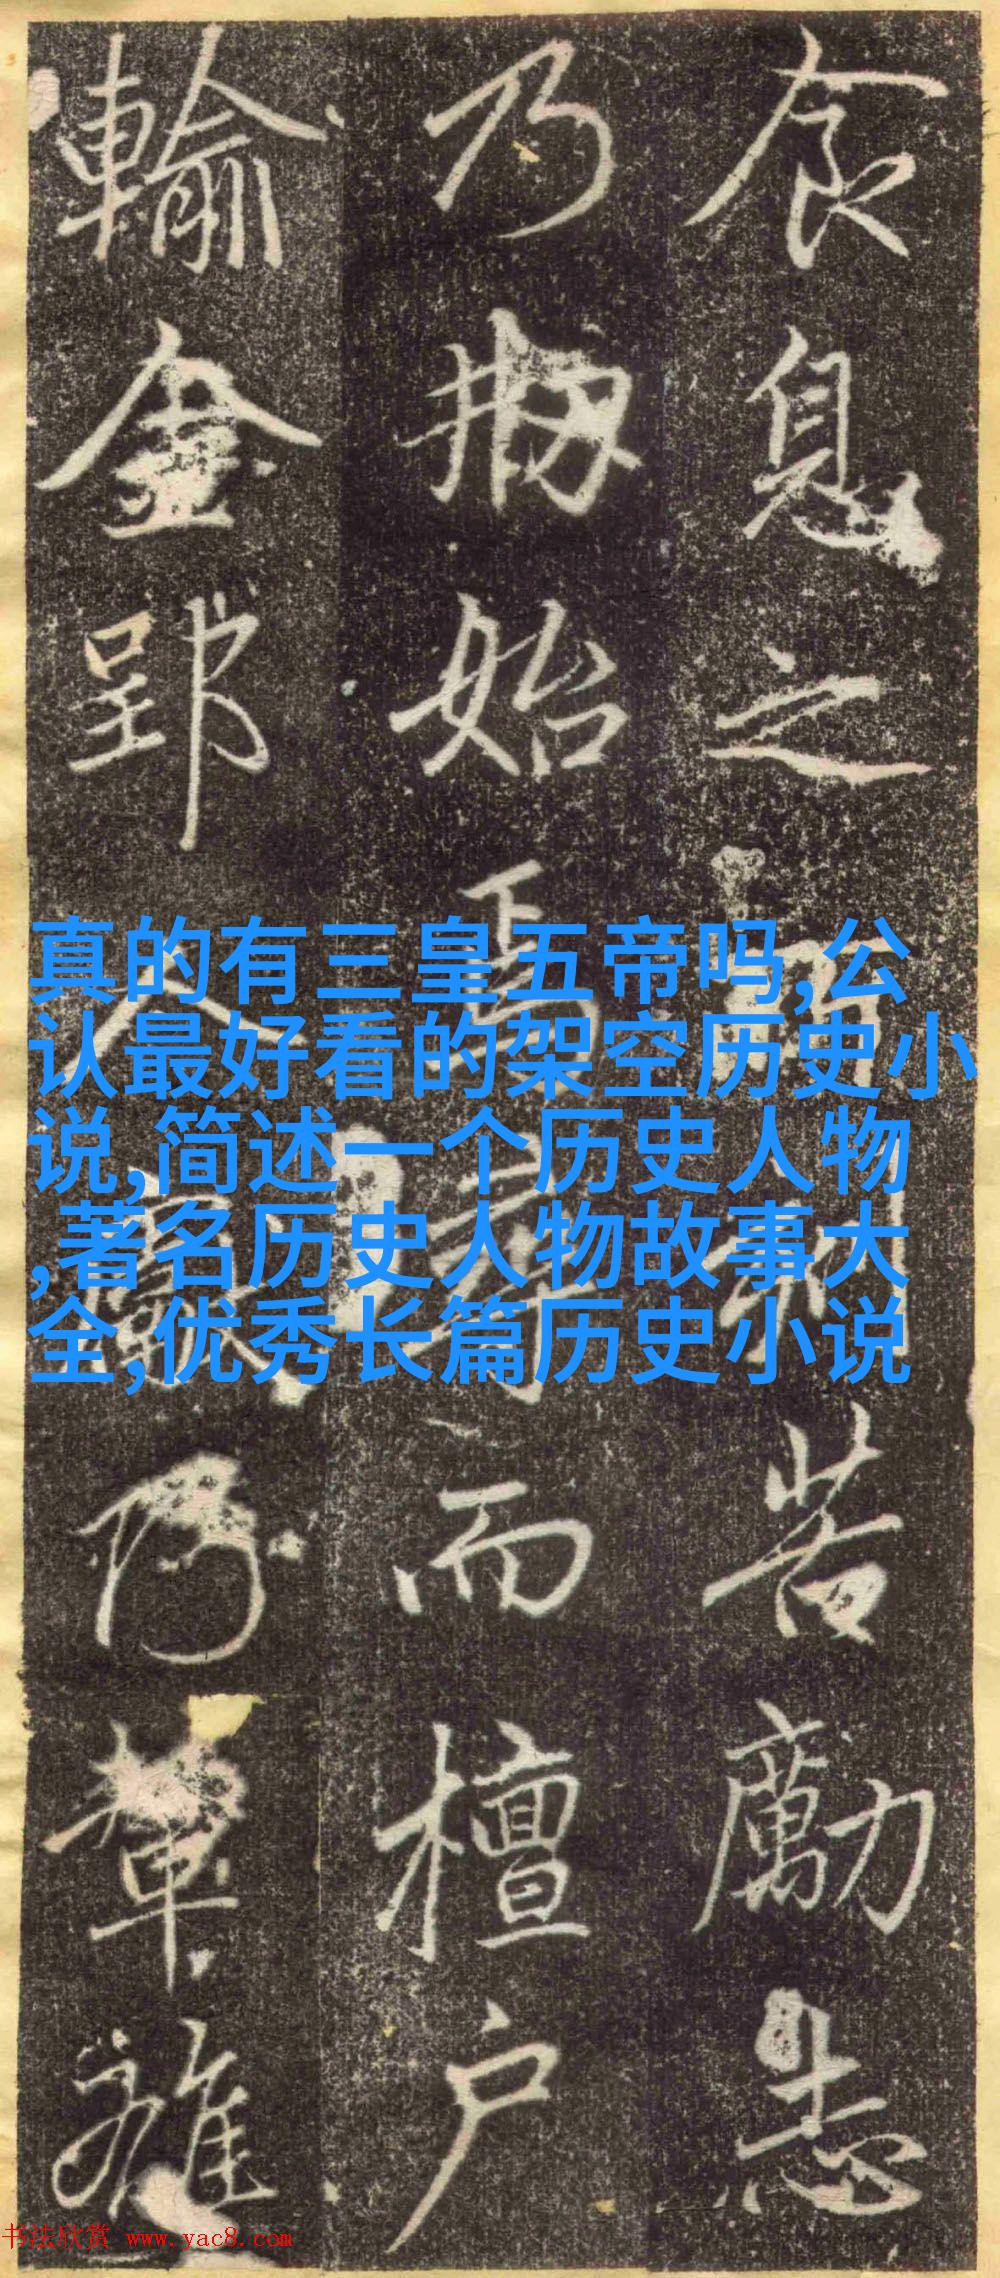 食息之苦勵志
乃始焉而檀户
輸金郢人
真的有三皇五帝吗,公
认最好看的架空历史小
说,简述一个历史人物
,著名历史人物故事大
全,优秀长篇历史小说
书法欣赏 www.yac8.com